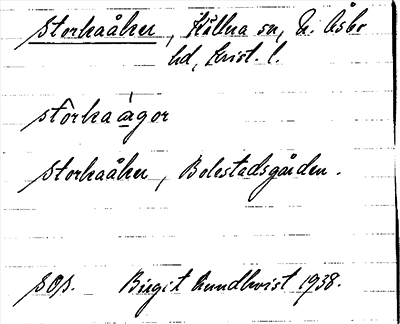 Storkaåker, Källna sn, N. Åsbo
hd, Krist. l.
stòrkaágor
Storkaåker, Bolestadsgården.
sop. Birgit Rundkvist 1938.